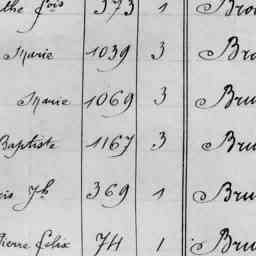 the fois 373 1 Bro
Marie 1039 3 Bro
Marie 1069 3 Bru
Baptiste 1167 3 Bru
cis Jh 369 1 Bru
Pierre félix 74 1 Bru